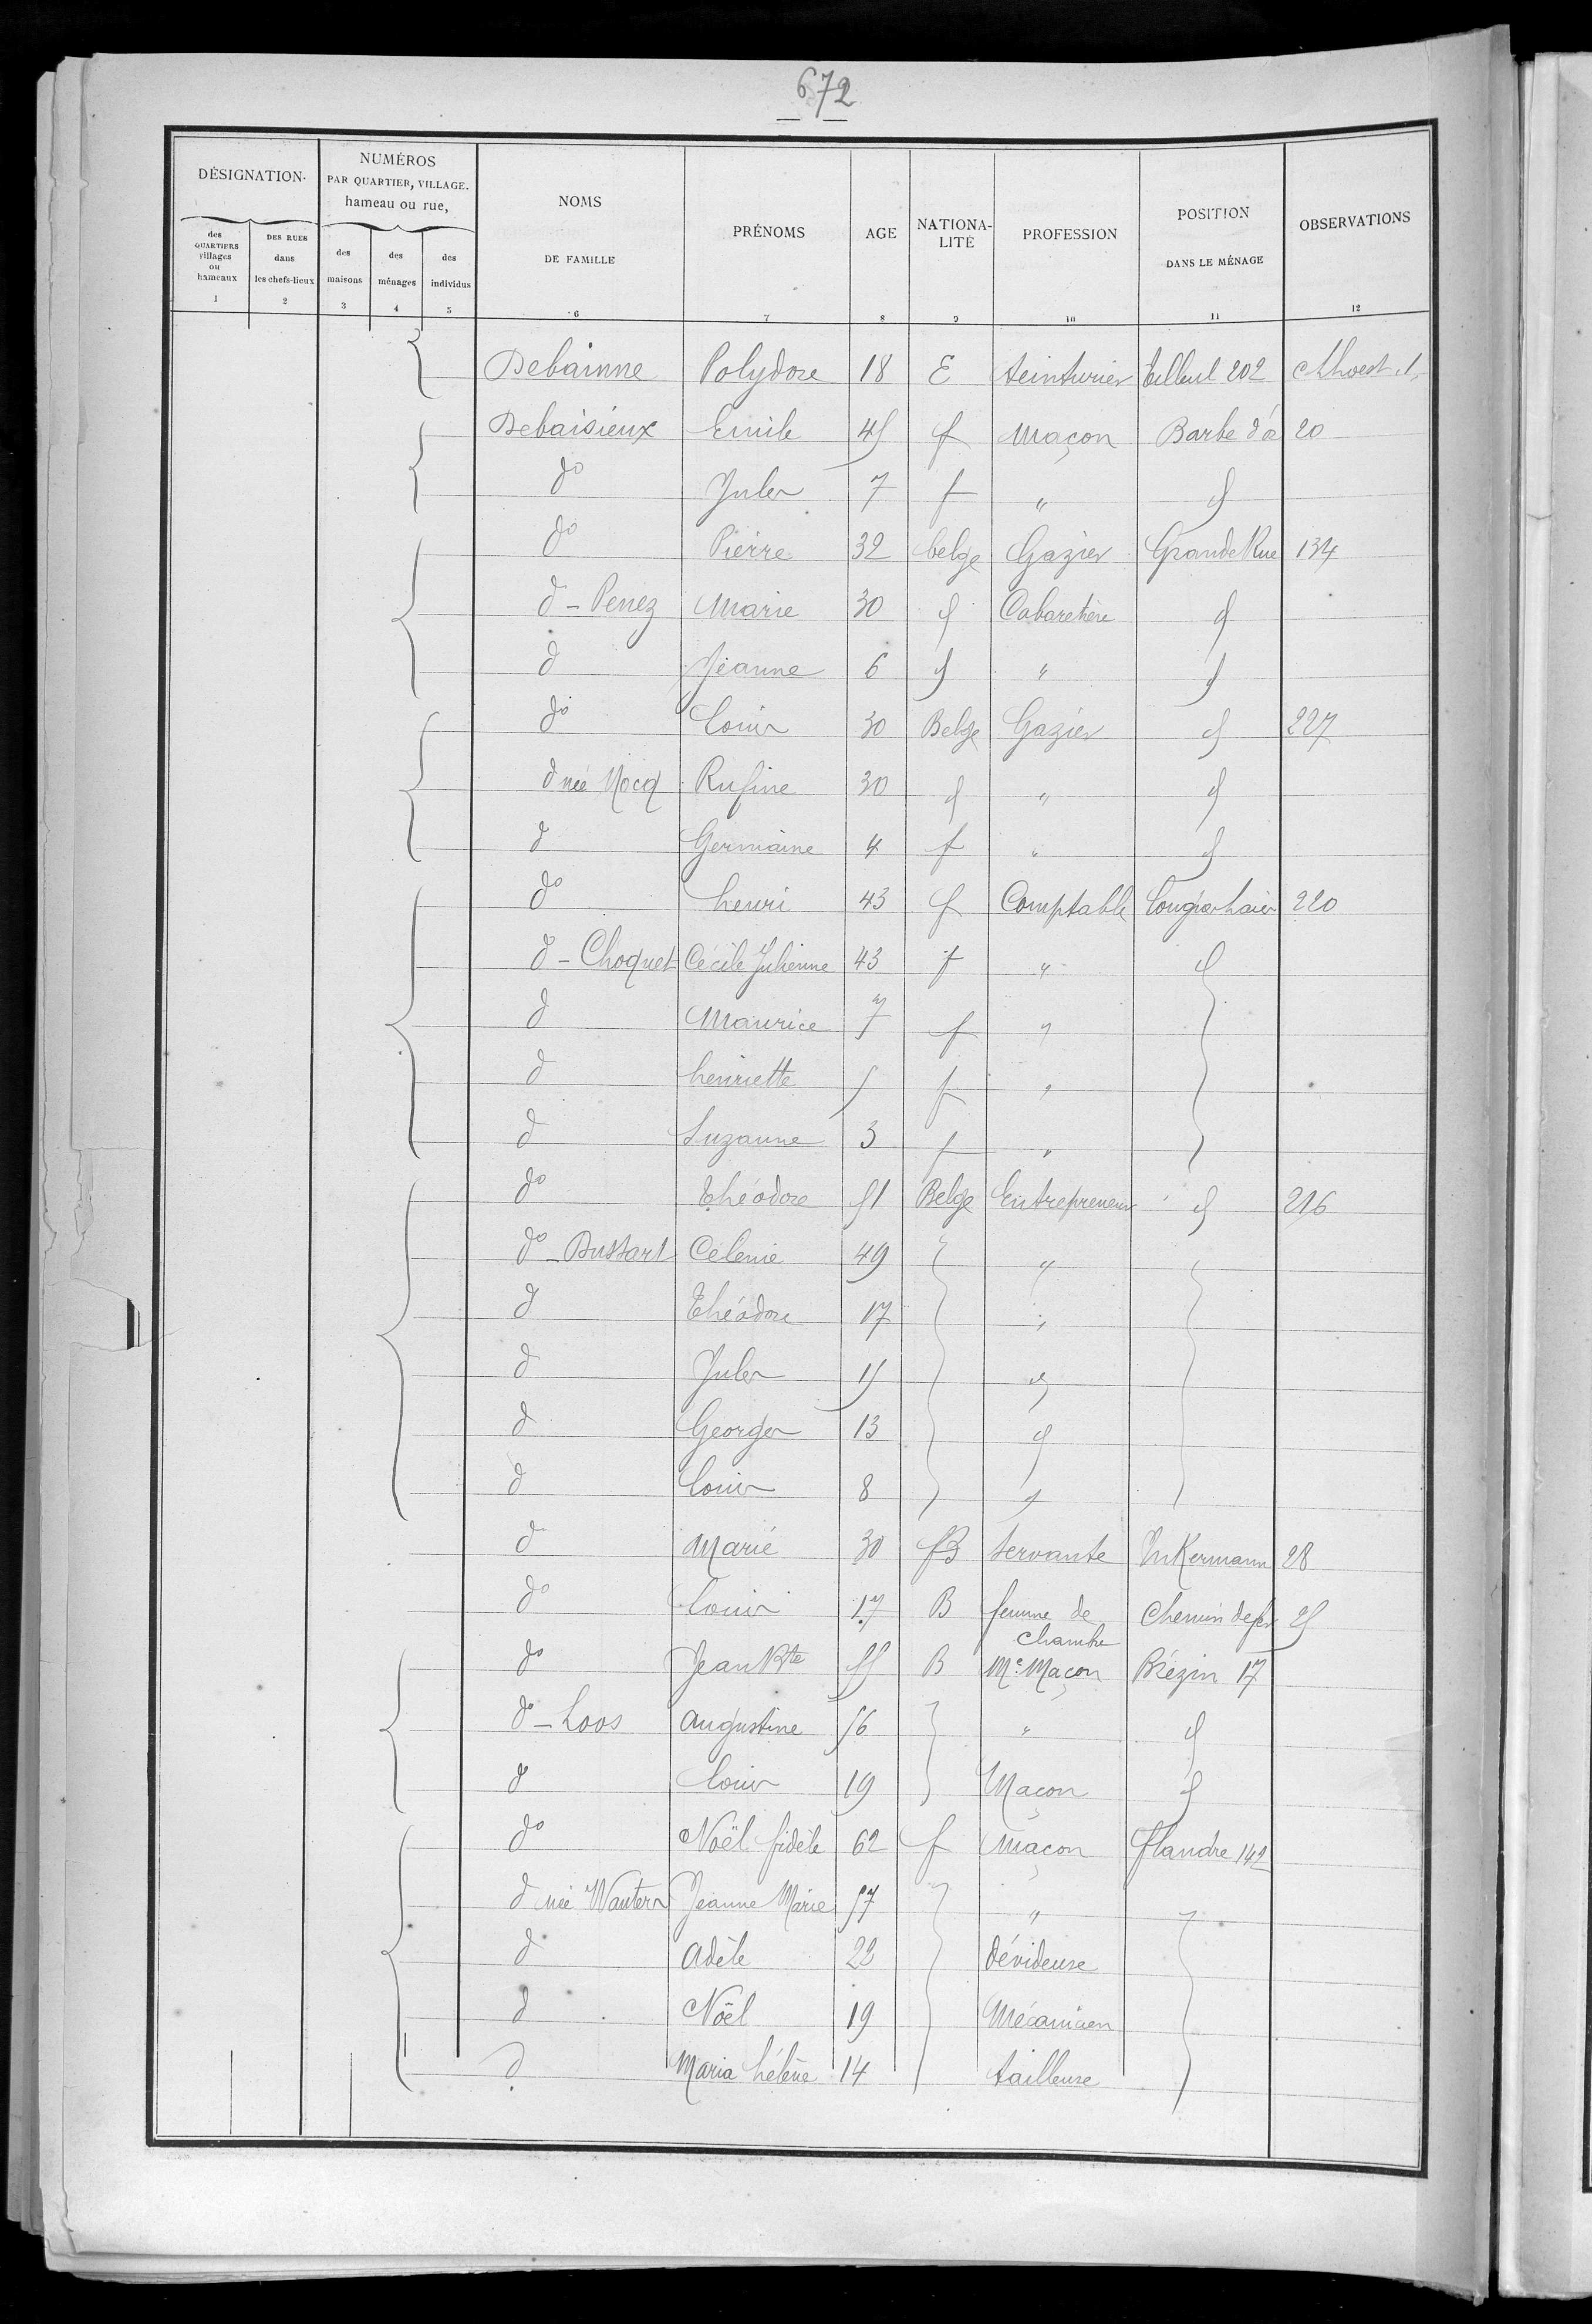 672
DÉSIGNATION. NUMÉROS PAR QUARTIER, VILLAGE. hameau ou rue, NOMS DE FAMILLE PRÉNOMS AGE NATIONA-LITÉ PROFESSION POSITION DANS LE MÉNAGE OBSERVATIONS
des QUARTIERS villages ou hameaux DES RUES dans les chefs-lieux des maisons des ménages des individus
1 2 3 4 5 6 7 8 9 10 11 12
Debainne Polydore 18 E teinturier Tilleul 202
Debaisieux Emile 45 f Maçon Barbe d'or 20
do Jules 7 f " d
do Pierre 32 belge Gazier Grande Rue 134
d - Penez Marie 30 d Cabaretière d
d Jeanne 6 d " d
do Louis 30 Belge Gazier d 227
d née Nocq Rufine 30 d " d
d Germaine 4 f " d
do henri 43 f Comptable Longues haies 220
d - Choquet Cécile Julienne 43 f " d
d Maurice 7 f "
d henriette 5 f "
d Suzanne 3 f "
do Théodore 51 Belge Entrepreneur d 216
do - Dussart Celenie 49 "
d Théodore 17 "
d Jules 15 d
d Georges 13 d
d Louis 8
d Marie 30 fB servante Inkermann 28
do Louis 17 B femme de chambre Chemin de fer 25
do Jean Bte 55 B Me Maçon Brézin 17
do - Loos Augustine 56 " d
d Louis 19 Maçon d
do Noël fidèle 62 f Maçon flandre 142
d née Wauters Jeanne Marie 57 "
d Adèle 22 dévideuse
d Noël 19 Mécanicien
d Maria hélène 14 tailleuse